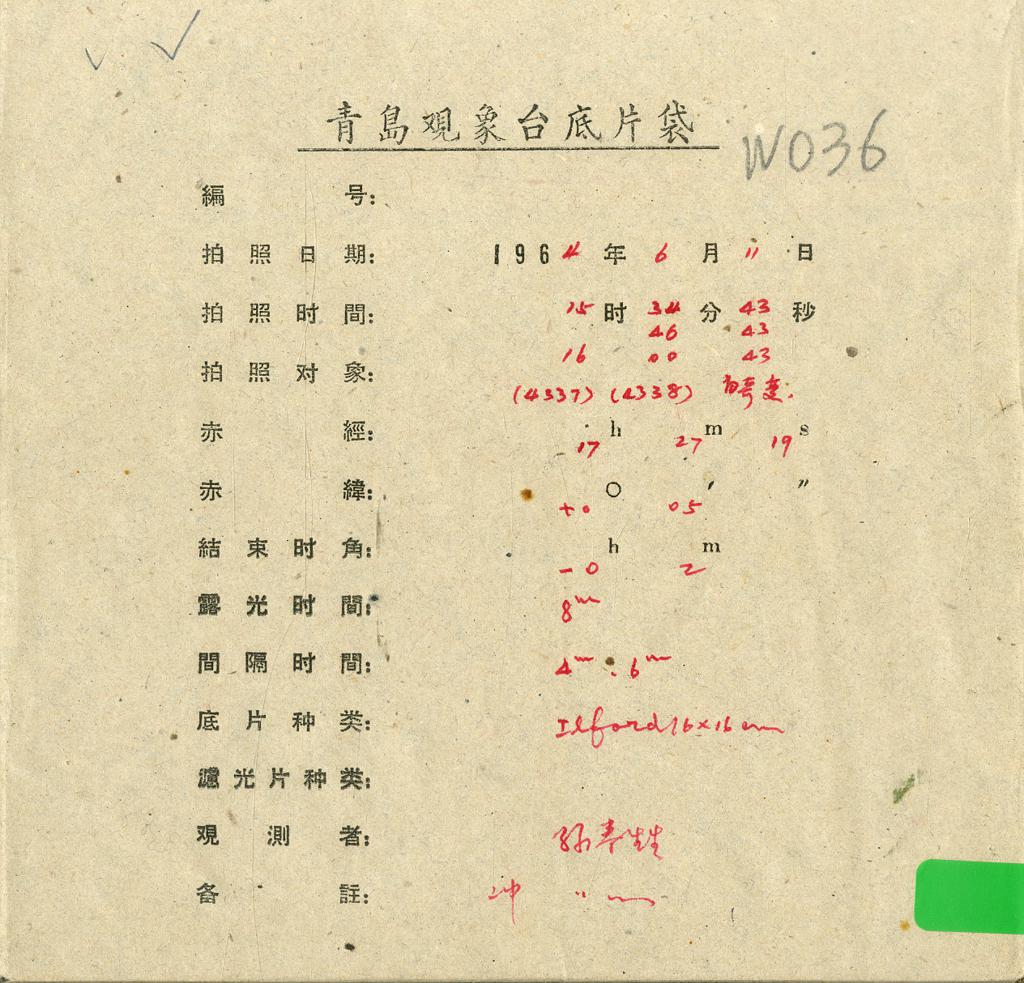 青島观象台底片袋
W036
編号:
拍照日期: 1964年6月11日
拍照时間: 15时34分43秒
46 43
16 00 43
拍照对象: (4337) (4338)
赤經: 17h 27m 19s
赤緯: +0° 05′ ″
結束时角: -0h 2m
露光时間: 8m
間隔时間: 4m. 6m
底片种类: Ilford 16×16 cm
濾光片种类:
观測者:
备註: 冲 〃